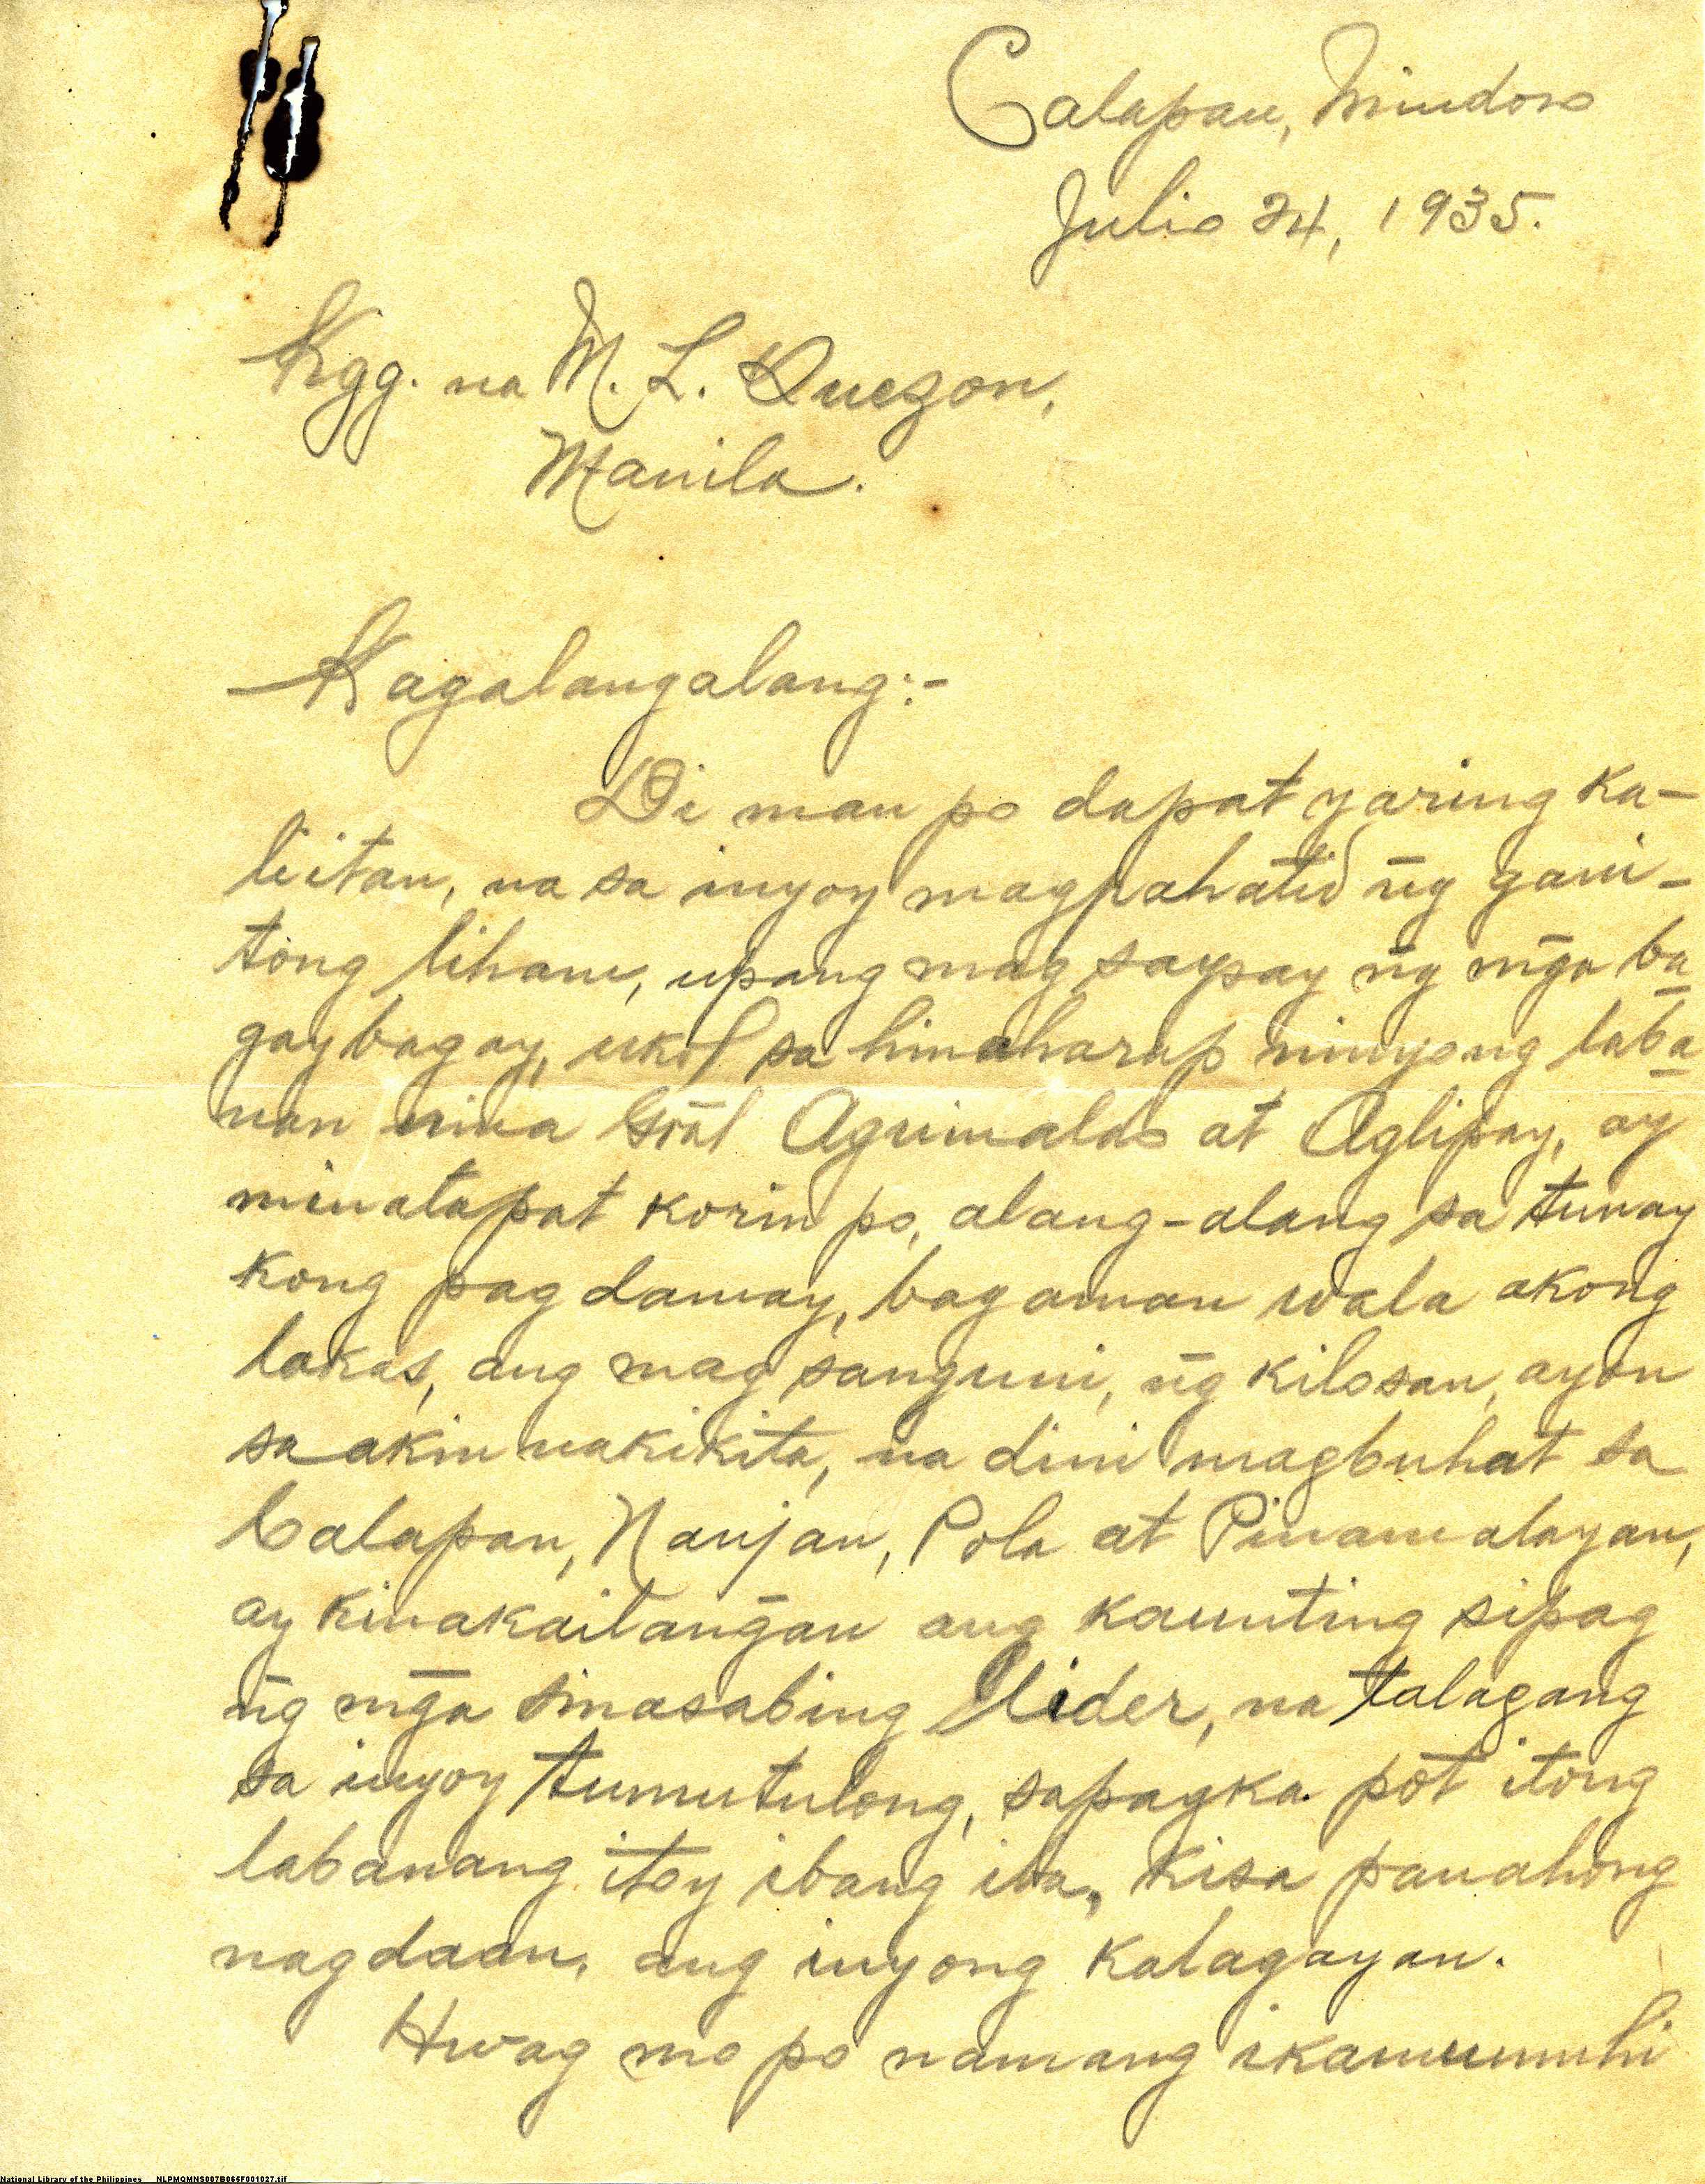 Calapan, Mindoro
Julio 24, 1935.
Kgg. na M. L. Quezon,
Manila.
Kagalangalang:-
Di man po dapat yaring ka-
liitan, na sa inyoy magpahatid ñg gani-
tong liham, upang mag saysay ñg mg̃a ba
gay bagay, ukol sa hinaharap ninyong laba
nan nina Gral Aguinaldo at Aglipay, ay
minatapat korin po, alang-alang sa tunay
kong pag damay, bagaman wala akong
lakas, ang mag sanguni, ñg kilosan, ayon
sa akin nakikita, na dini magbuhat sa
Calapan, Naujan, Pola at Pinamalayan,
ay kinakailan͠gan ang kaunting sipag
ñg mg̃a sinasabing lider, na talagang
sa inyoy tumutulong, sapagka pot itong
labanang itoy ibang iba, kisa panahong
nagdaan, ang inyong kalagayan.
Hwag mo po namang ikamumuhi
National Library of the Philippines NLPMQMNS007B066F001027.tif